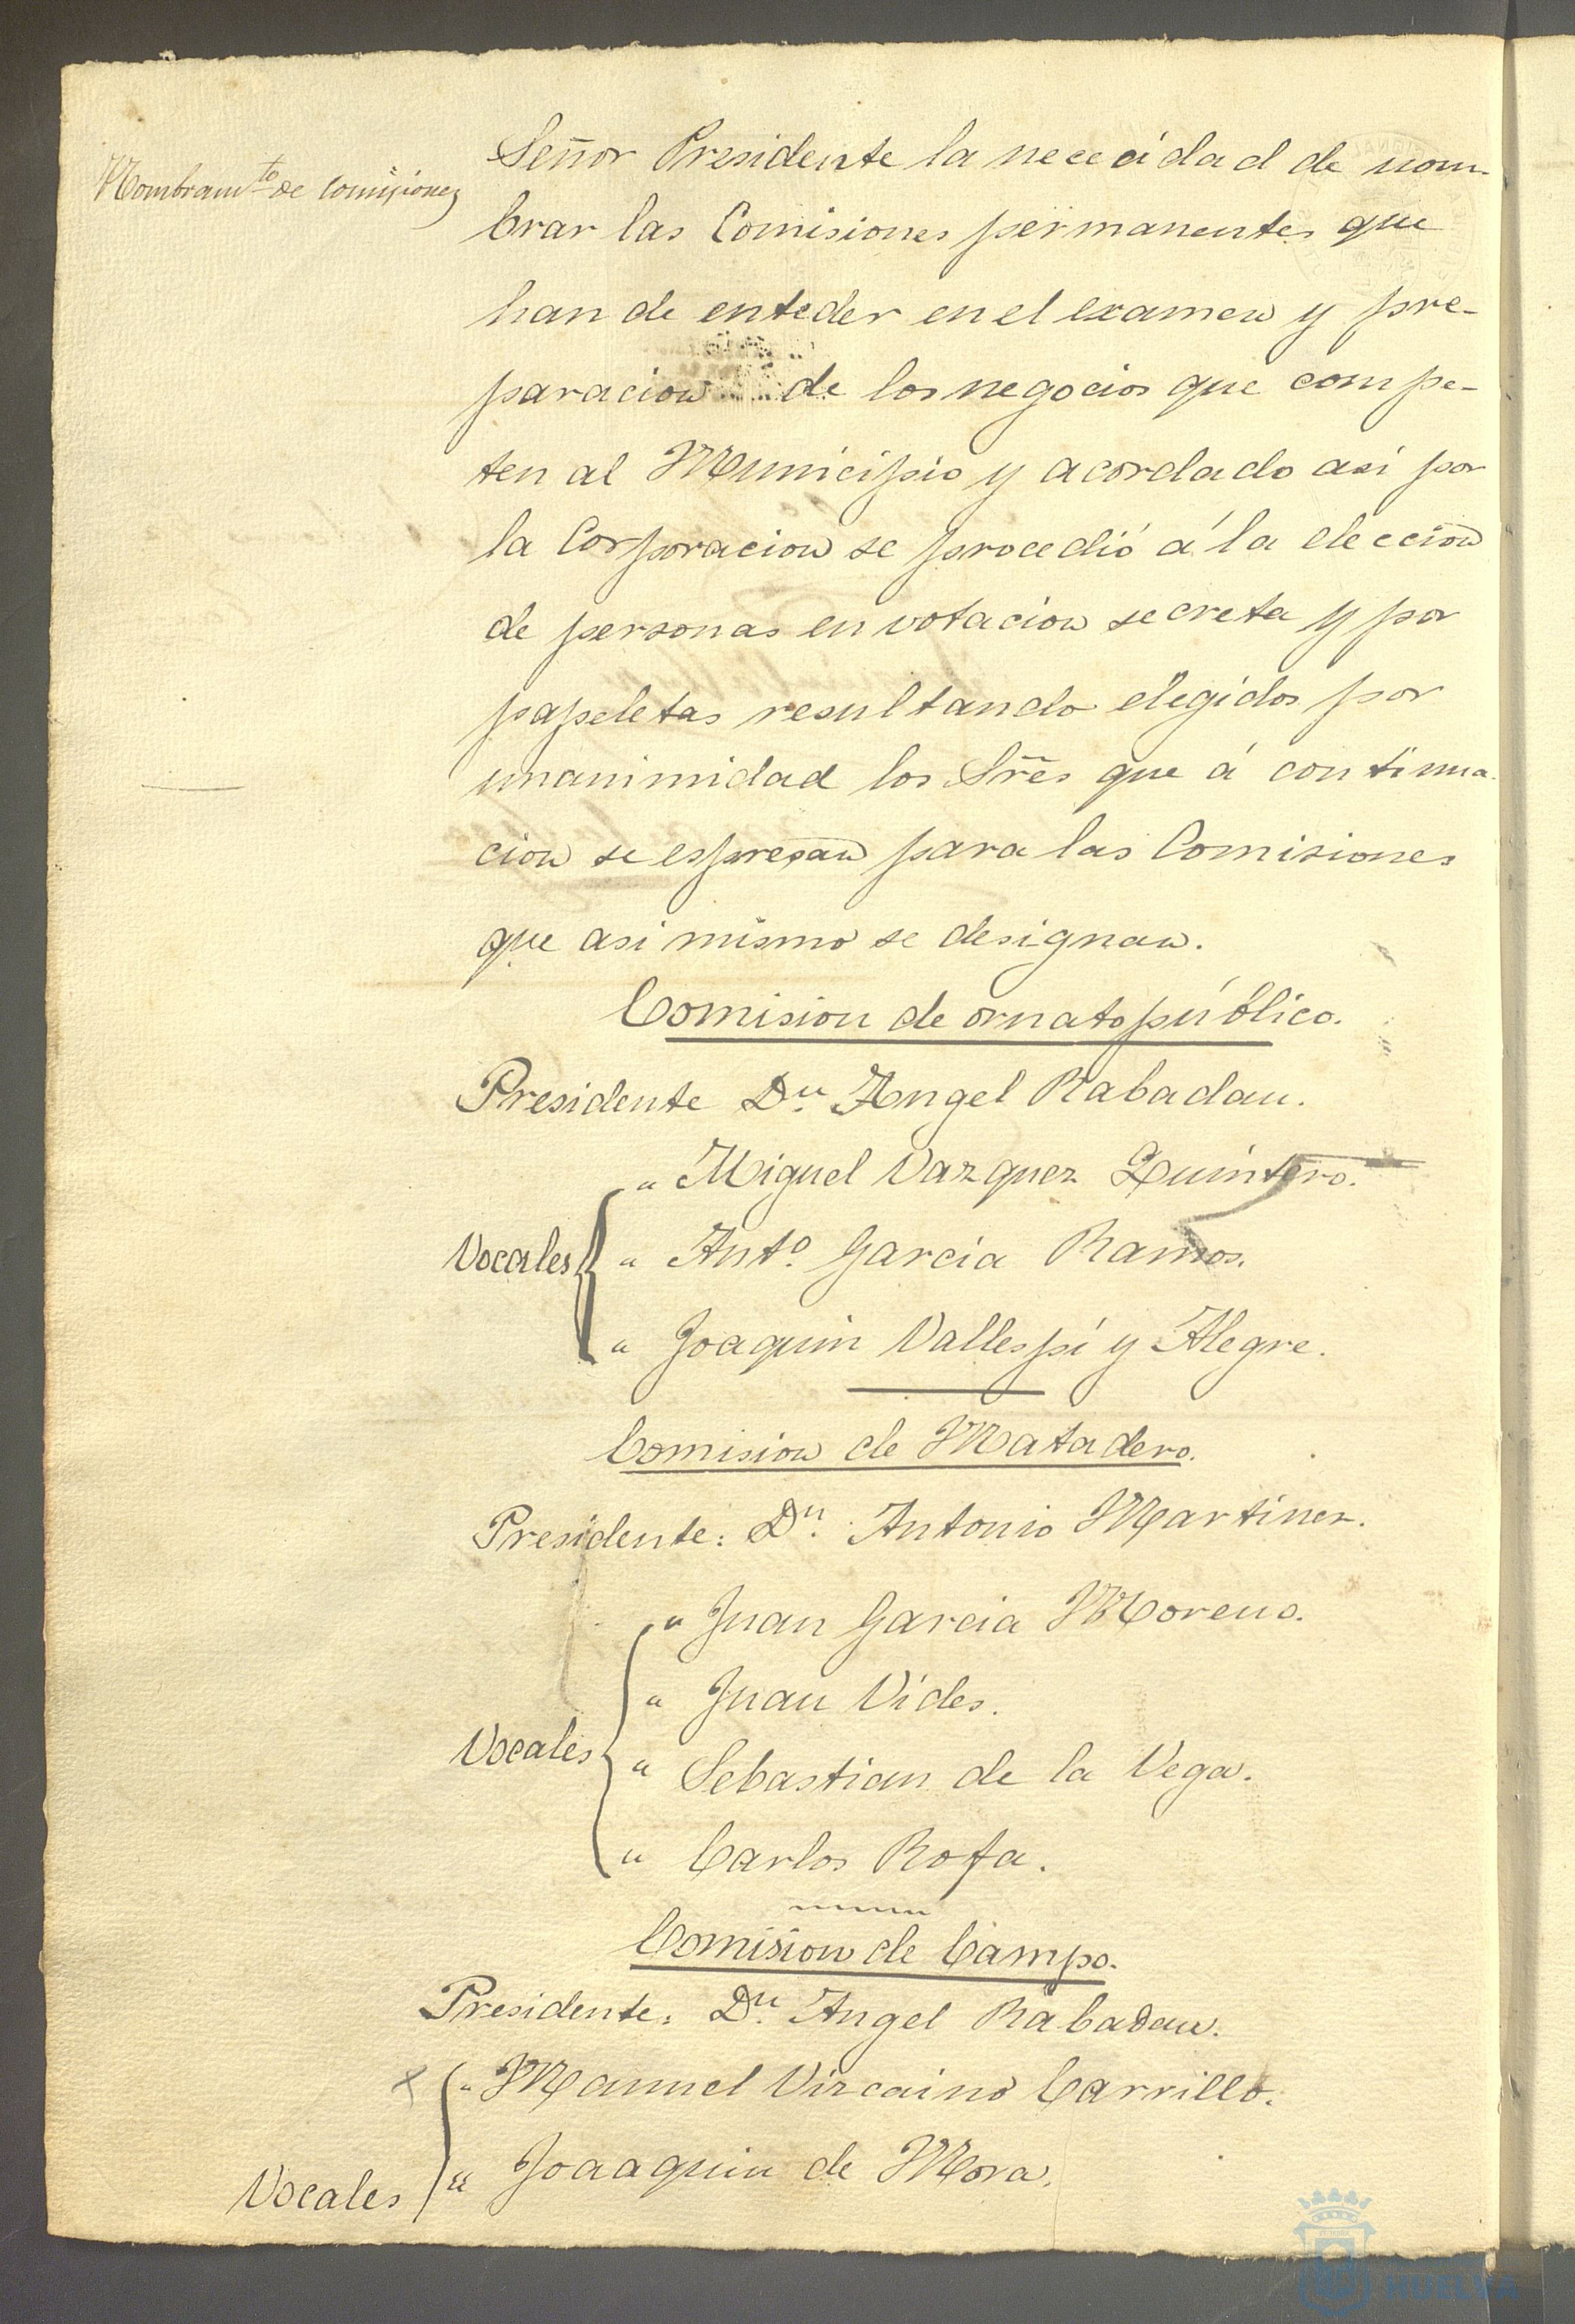 Nombramto de Comisiones
Señor Presidente la nececidad de nom-
brar las Comisiones permanentes que
han de enteder en el examen y pre-
paracion de los negocios que compe-
ten al Municipio y acordado asi por
la Corporacion se procedió á la eleccion
de personas en votacion secreta y por
papeletas resultando elegidos por
unanimidad los Sres que á continua-
cion se espresan para las Comisiones
que asi mismo se designan.
Comision de ornato público.
Presidente Dn. Angel Rabadan.
" Miguel Vazquez Quintero.
Vocales " Anto. Garcia Ramos.
" Joaquin Vallespí y Alegre.
Comision de Matadero.
Presidente: Dn. Antonio Martinez.
" Juan Garcia Moreno.
" Juan Vides.
Vocales " Sebastian de la Vega.
" Carlos Rofa.
Comision de Campo.
Presidente: Dn. Angel Rabadan.
" Manuel Vizcaino Carrillo.
Vocales " Joaaquin de Mora.
HUELVA